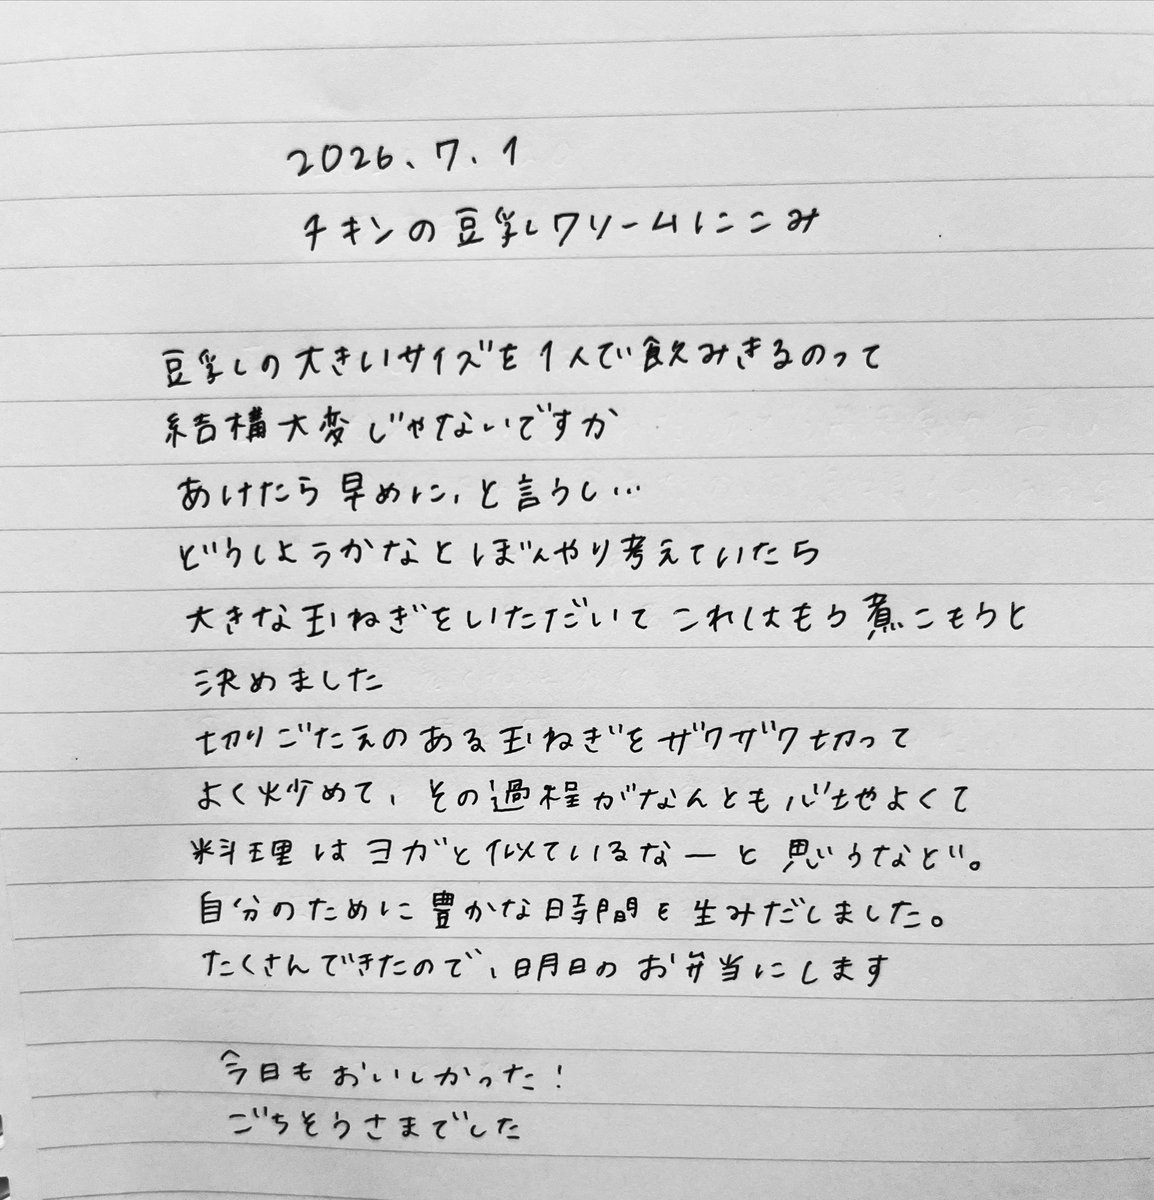 2026.7.1
チキンの豆乳クリームにこみ
豆乳の大きいサイズを1人で飲みきるのって
結構大変じゃないですか
あけたら早めに、と言うし…
どうしようかなとぼんやり考えていたら
大きな玉ねぎをいただいて これはもう煮こもうと
決めました
切りごたえのある玉ねぎをザクザク切って
よく炒めて、その過程がなんとも心地よくて
料理はヨガと似ているなーと思うなど。
自分のために豊かな時間を生みだしました。
たくさんできたので、明日のお弁当にします
今日もおいしかった!
ごちそうさまでした